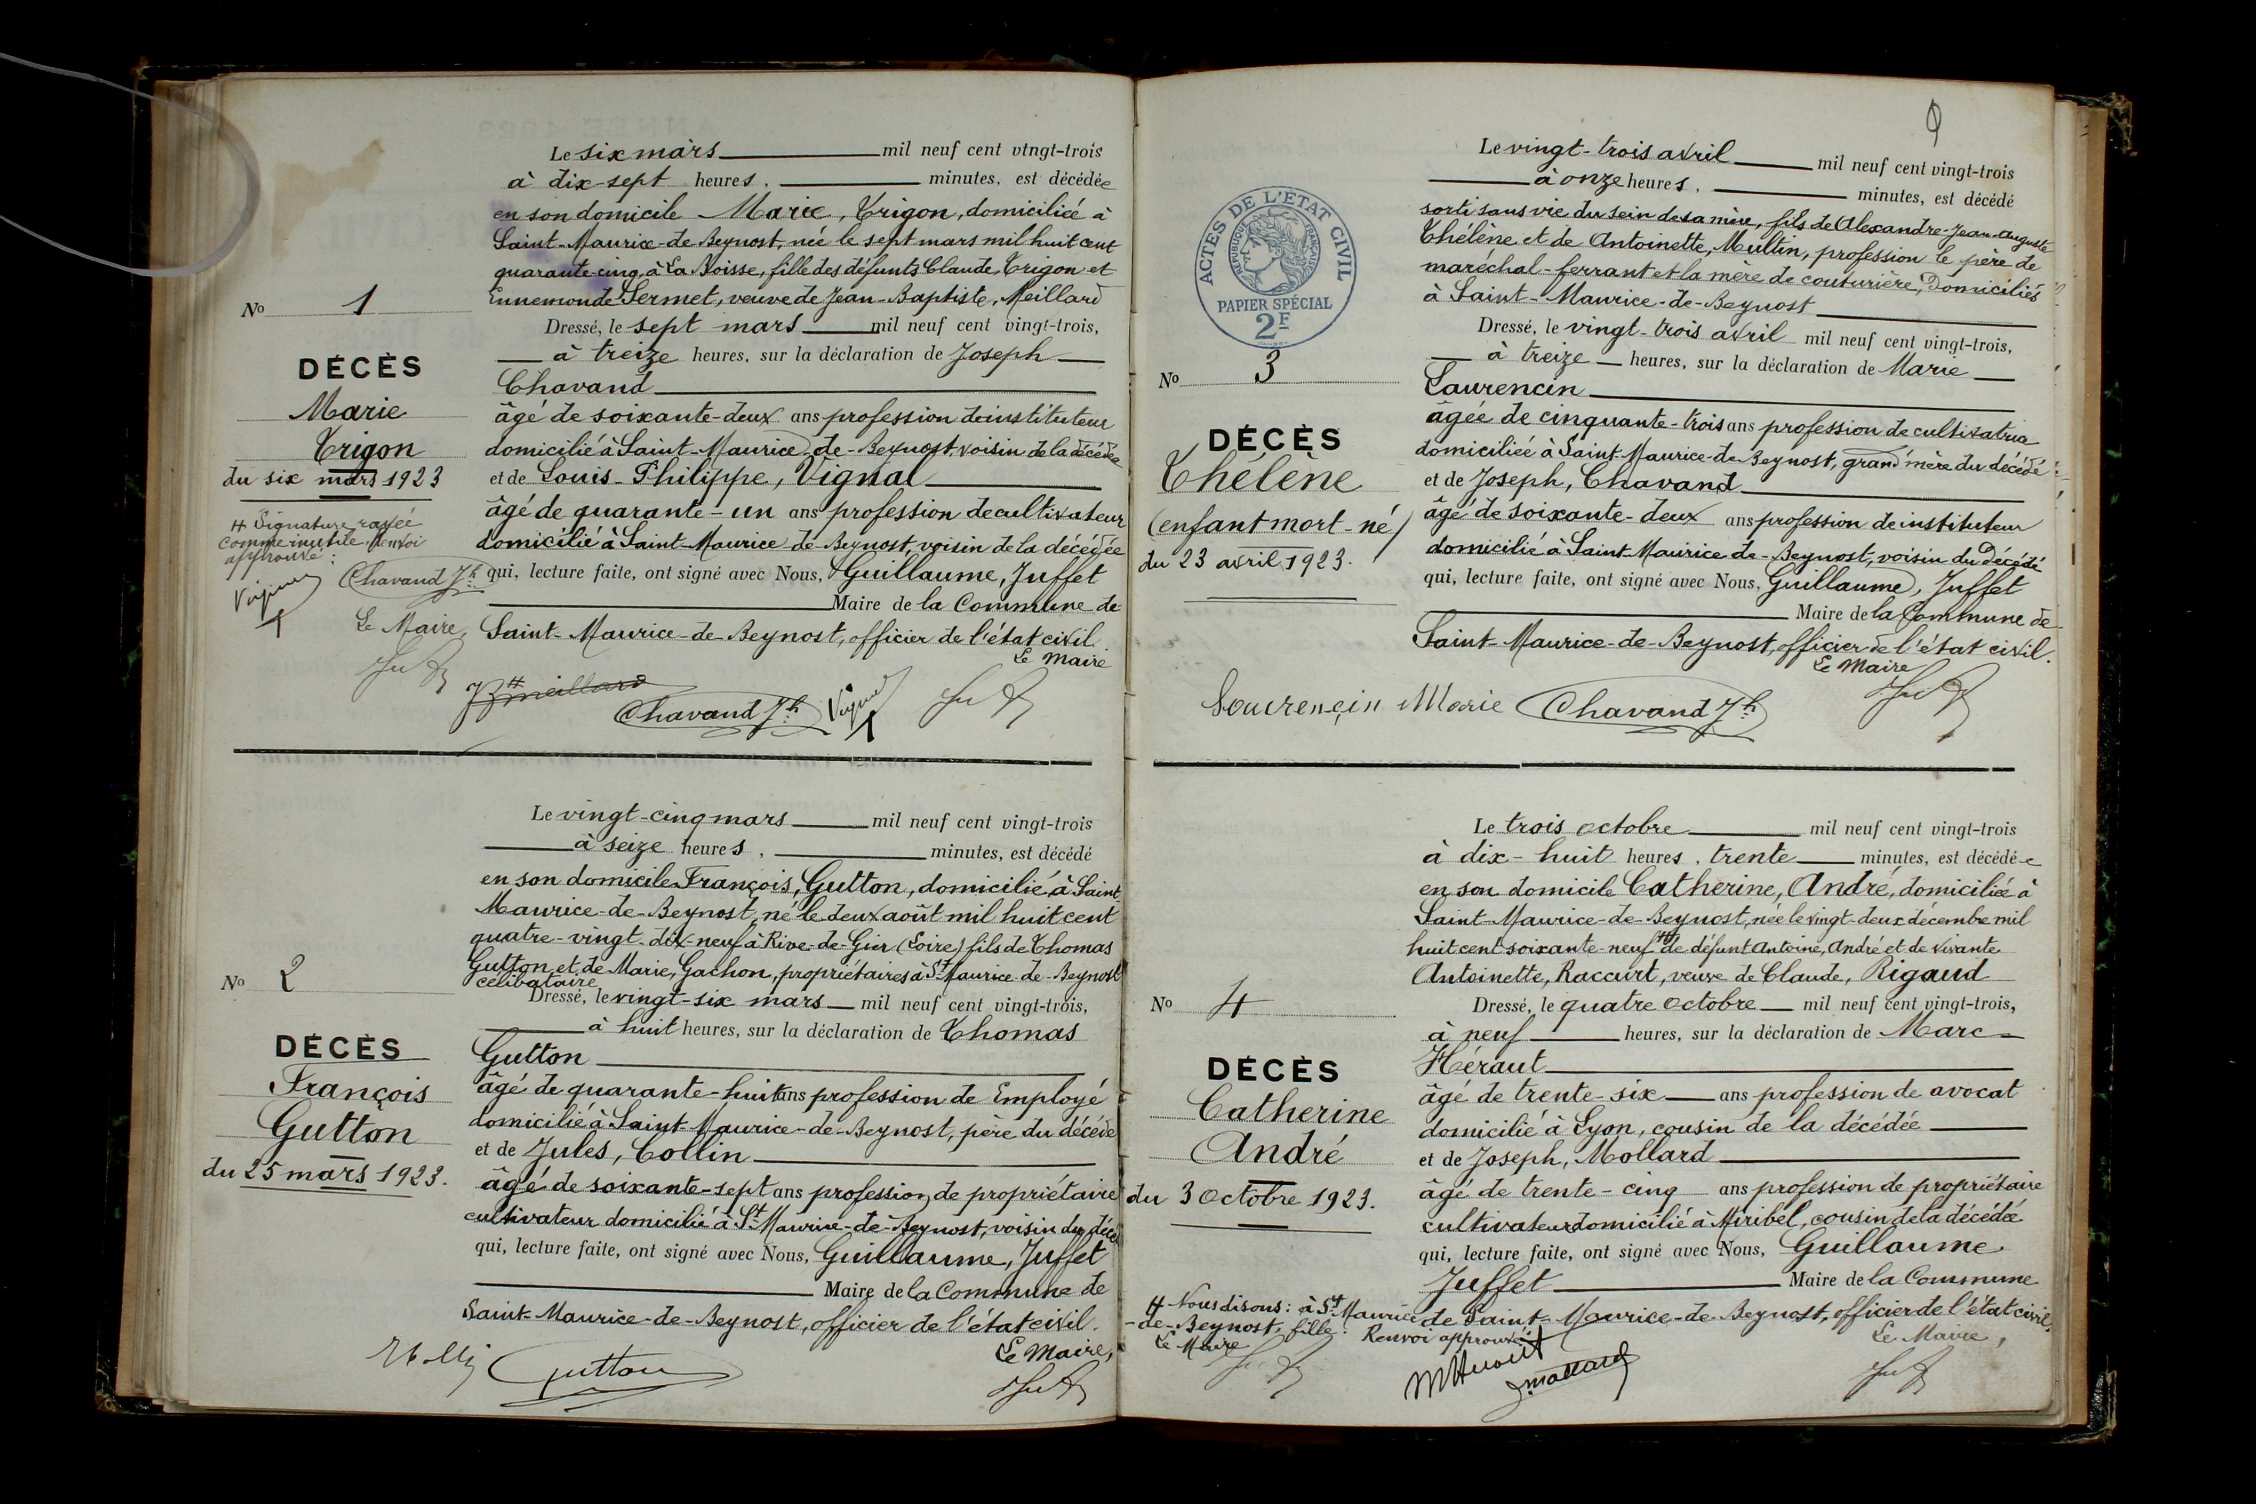 Le six mars mil neuf cent vingt-trois
à dix-sept heures, minutes, est décédée
en son domicile Marie, Trigon, domiciliée à
Saint-Maurice-de-Beynost, née le sept mars mil huit cent
quarante-cinq à La Boisse, fille des défunts Claude, Trigon et
Ennemonde Sermet, veuve de Jean-Baptiste, Meillard
No 1
Dressé, le sept mars mil neuf cent vingt-trois,
à treize heures, sur la déclaration de Joseph
DÉCÈS
Chavand
Marie
âgé de soixante-deux ans profession de instituteur
Trigon
domicilié à Saint-Maurice-de-Beynost, voisin de la décédée
du six mars 1923
et de Louis-Philippe, Vignal
âgé de quarante-un ans profession de cultivateur
# Signature rayée
comme inutile. Renvoi
approuvé :
domicilié à Saint-Maurice de-Beynost, voisin de la décédée
Chavand Jh
qui, lecture faite, ont signé avec Nous, Guillaume, Juffet
Maire de la Commune de
Le Maire,
Saint-Maurice-de-Beynost, officier de l'état civil.
Le Maire
# Meillard
Chavand Jh
Le vingt-cinq mars mil neuf cent vingt-trois
à seize heures, minutes, est décédé
en son domicile François, Gutton, domicilié à Saint-
Maurice-de-Beynost, né le deux août mil huit cent
quatre-vingt-dix-neuf à Rive-de-Gier (Loire) fils de Thomas
Gutton et de Marie, Gachon, propriétaires à St Maurice-de-Beynost
célibataire
No 2
Dressé, le vingt-six mars mil neuf cent vingt-trois,
à huit heures, sur la déclaration de Thomas
DÉCÈS
Gutton
François
âgé de quarante-huit ans profession de Employé
Gutton
domicilié à Saint-Maurice-de-Beynost, père du décédé
et de Jules, Collin
du 25 mars 1923.
âgé de soixante-sept ans profession de propriétaire
cultivateur domicilié à St Maurice-de-Beynost, voisin du décé
qui, lecture faite, ont signé avec Nous, Guillaume, Juffet
Maire de la Commune de
Saint-Maurice-de-Beynost, officier de l'état civil.
Le Maire,
Gutton
Le vingt-trois avril mil neuf cent vingt-trois
à onze heures, minutes, est décédé
sorti sans vie du sein de sa mère, fils de Alexandre-Jean-Auguste
Thélène et de Antoinette, Multin, profession le père de
maréchal-ferrant et la mère de couturière, Domiciliés
à Saint-Maurice-de-Beynost
ACTES DE L'ETAT CIVIL
REPUBLIQUE FRANÇAISE
PAPIER SPÉCIAL
2F
Dressé, le vingt-trois avril mil neuf cent vingt-trois,
à treize heures, sur la déclaration de Marie
No 3
Laurencin
DÉCÈS
âgée de cinquante-trois ans profession de cultivatrice
domiciliée à Saint-Maurice-de-Beynost, grand'mère du décédé
Thélène
et de Joseph, Chavand
(enfant mort-né)
âgé de soixante-deux ans profession de instituteur
du 23 avril 1923.
domicilié à Saint-Maurice de-Beynost, voisin du décédé
qui, lecture faite, ont signé avec Nous, Guillaume, Juffet
Maire de la Commune de
Saint-Maurice-de-Beynost, officier de l'état civil.
Le Maire
Lourençin Marie Chavand Jh
Le trois octobre mil neuf cent vingt-trois
à dix-huit heures, trente minutes, est décédée
en son domicile Catherine, André, domiciliée à
Saint-Maurice-de-Beynost, née le vingt-deux décembre mil
huit cent soixante-neuf # de défunt Antoine, André et de vivante
Antoinette, Raccurt, veuve de Claude, Rigaud
No 4
Dressé, le quatre octobre mil neuf cent vingt-trois,
à neuf heures, sur la déclaration de Marc
Héraut
DÉCÈS
âgé de trente-six ans profession de avocat
Catherine
domicilié à Lyon, cousin de la décédée
André
et de Joseph, Mollard
du 3 octobre 1923.
âgé de trente-cinq ans profession de propriétaire
cultivateur domicilié à Miribel, cousin de la décédée
qui, lecture faite, ont signé avec Nous, Guillaume
Juffet Maire de la Commune
de Saint-Maurice-de-Beynost, officier de l'état civil.
# Nous disons : à St Maurice
-de-Beynost, fille. Renvoi approuvé.
Le Maire
Le Maire,
J. Mollard